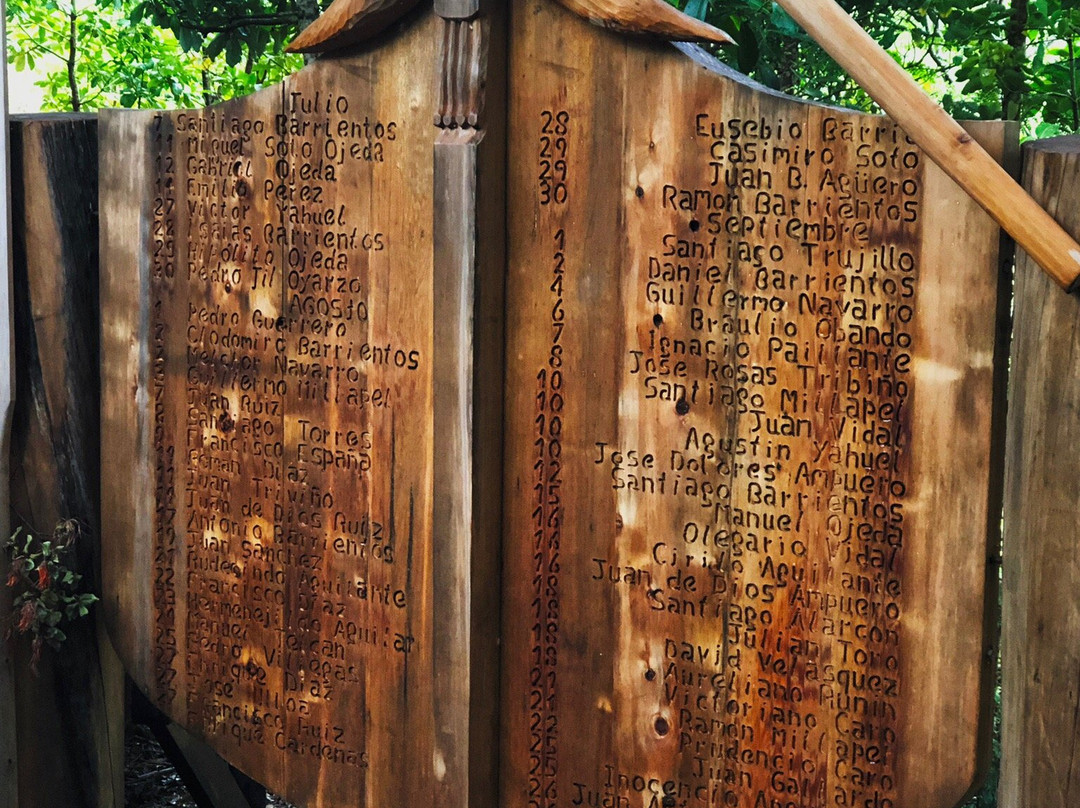 Julio
7 Santiago Barrientos
11 Miguel Soto Ojeda
12 Gabriel Ojeda
14 Emilio Perez
27 Victor Yahuel
28 Isaias Barrientos
29 Hipolito Ojeda
30 Pedro Jil Oyarzo
AGOSTO
1 Pedro Guerrero
Clodomiro Barrientos
Melchor Navarro
Guillermo Millapel
Juan Ruiz
Santiago Torres
Francisco España
Roman Diaz
Juan Triviño
Juan de Dios Ruiz
Antonio Barrientos
Juan Sanchez
Rudecindo Aguilante
22 Francisco Diaz
Hermenejildo Aguilar
Manuel Tecan
25 Pedro Villegas
Enrique Diaz
Jose Ulloa
Francisco Ruiz
Enrique Cardenas
28 Eusebio Barrie
29 Casimiro Soto
29 Juan B. Agüero
30 Ramon Barrientos
Septiembre
1 Santiago Trujillo
2 Daniel Barrientos
4 Guillermo Navarro
6 Braulio Obando
7 Ignacio Paillante
8 Jose Rosas Tribiño
10 Santiago Millapel
10 Juan Vidal
10 Agustin Yahuel
10 Jose Dolores Ampuero
12 Santiago Barrientos
15 Manuel Ojeda
16 Olegario Vidal
16 Cirilo Aguilante
16 Juan de Dios Ampuero
18 Santiago Alarcon
18 Julian Toro
18 David Velasquez
18 Aureliano Runin
21 Victoriano Caro
21 Ramon Millapel
22 Prudencio Caro
22 Juan Gallardo
25 Inocencio
26 Juan